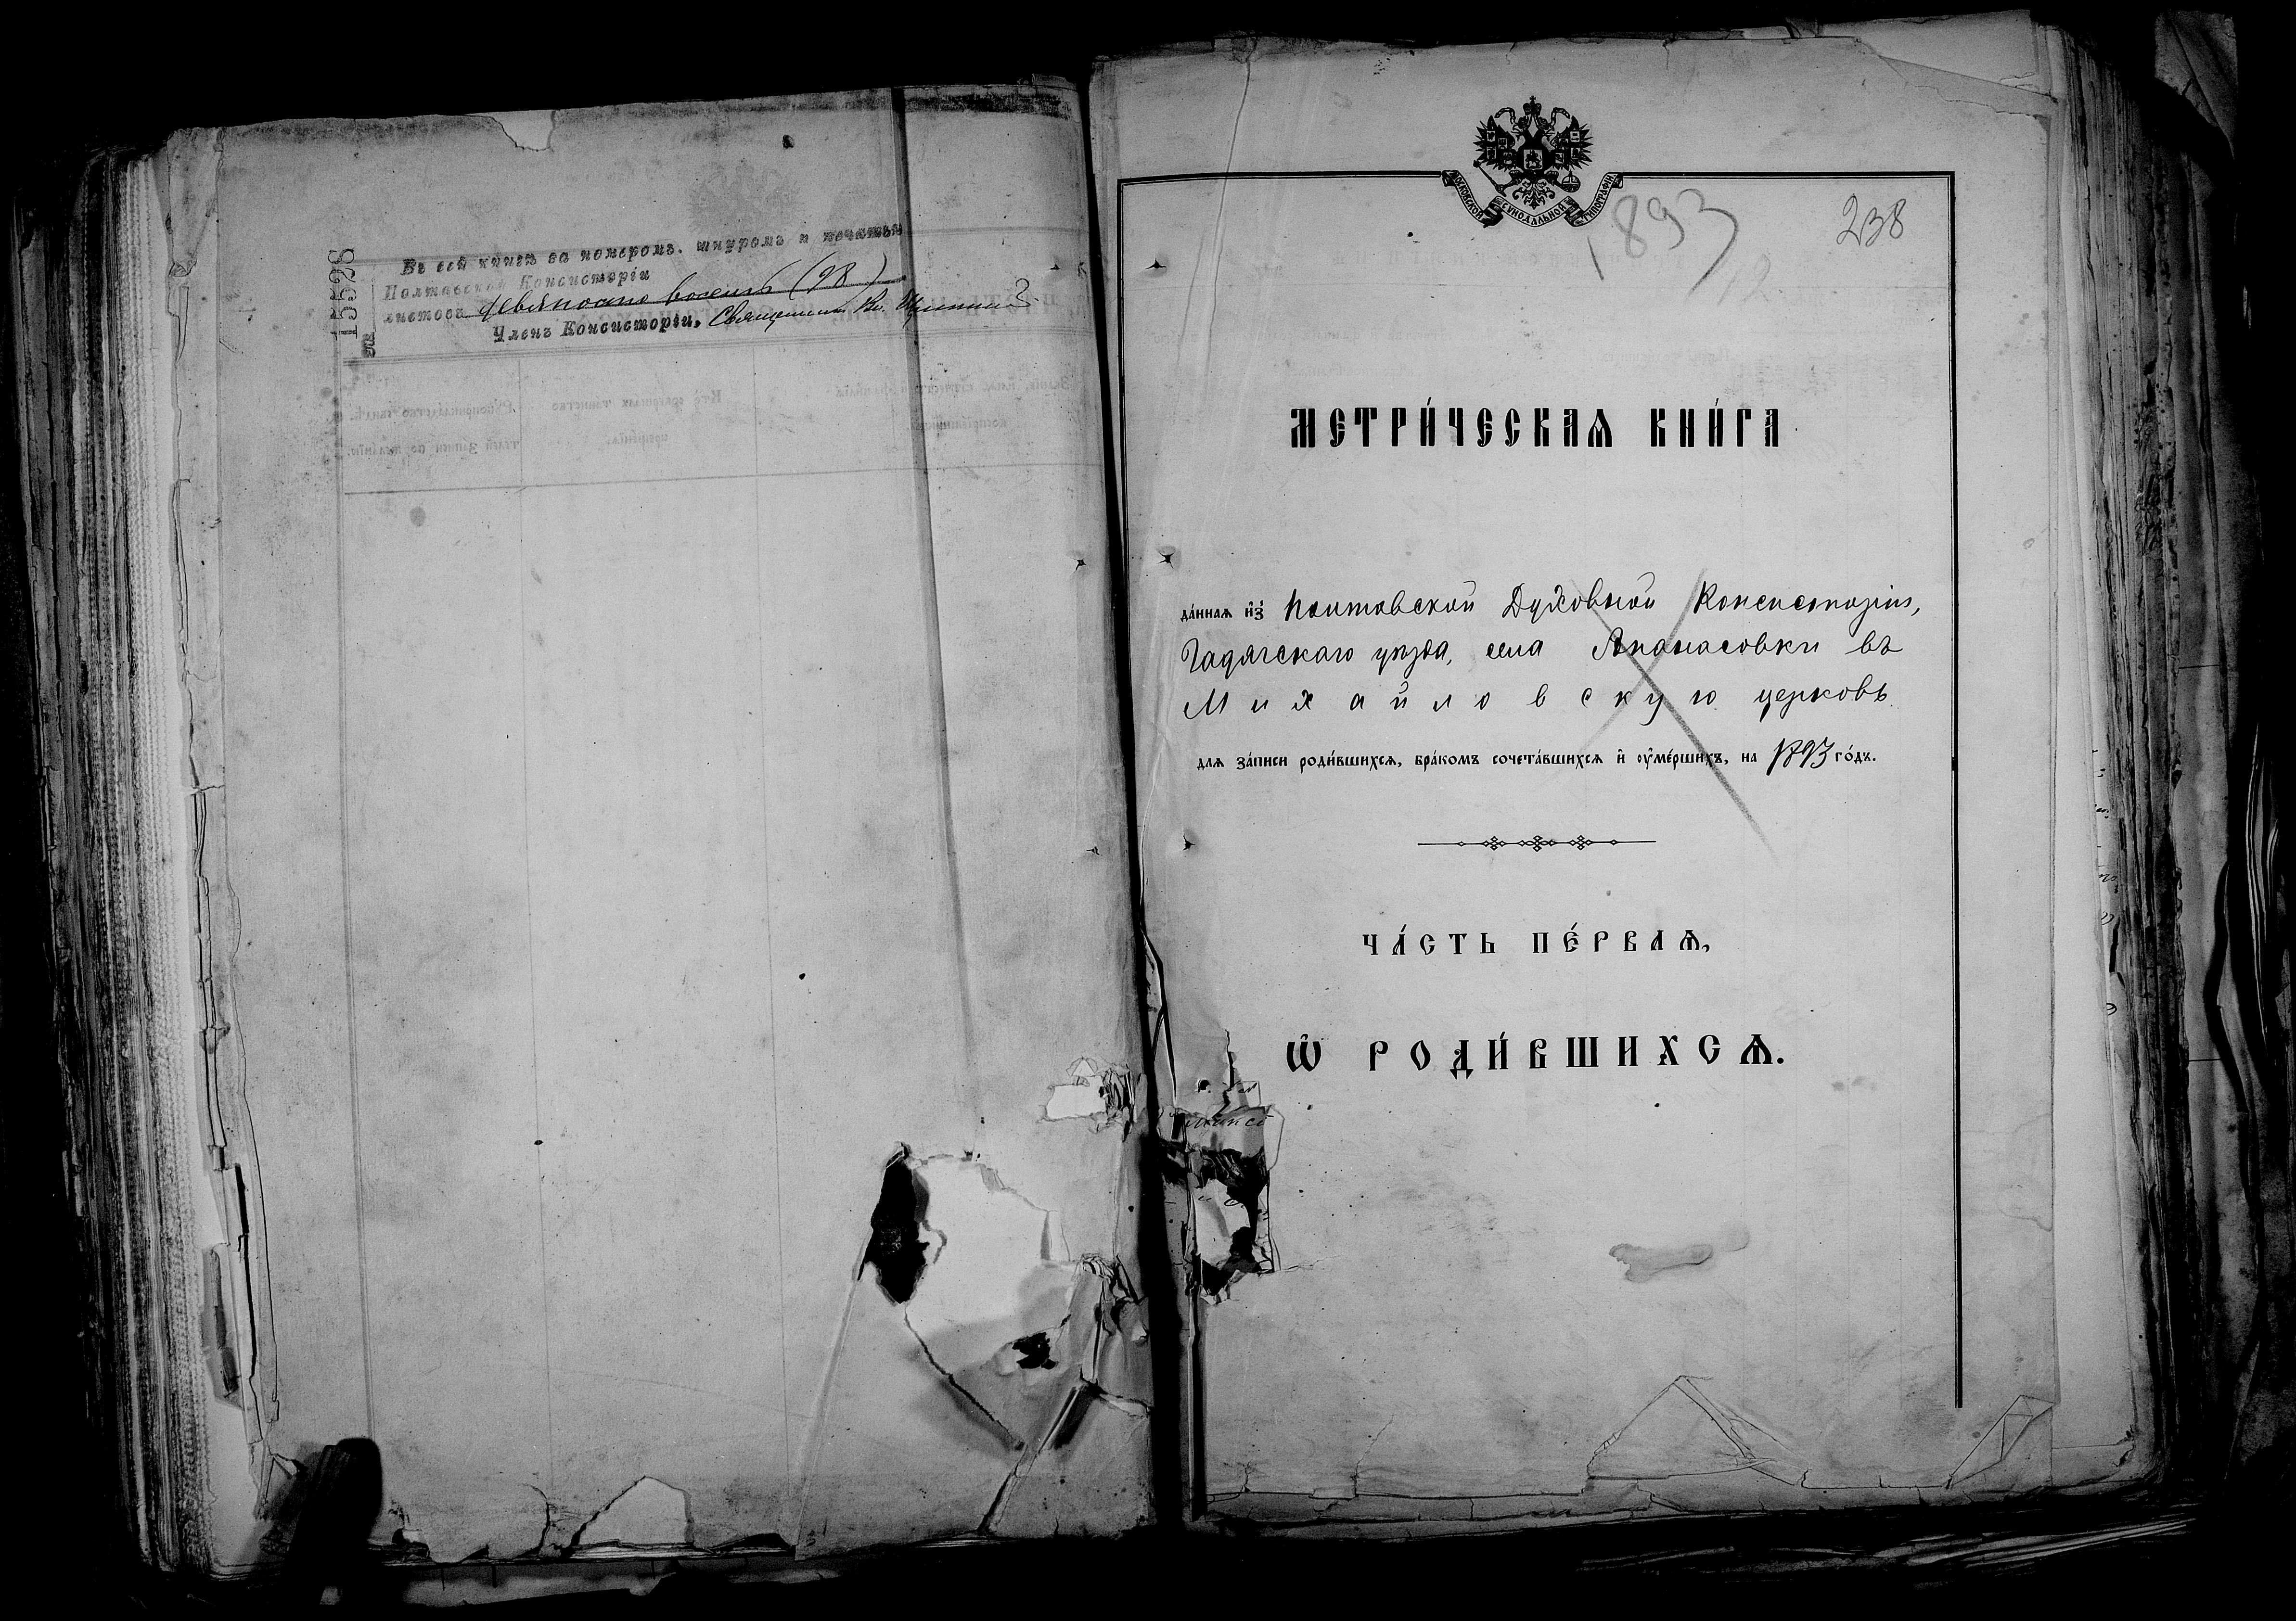 15528
Въ сей книгѣ за номеромъ, шнуромъ и печатью
Полтавской Консисторіи
листовъ девяносто восемь (98)
Членъ Консисторіи, Священникъ
МОСКОВСКОЙ СѴНОДАЛЬНОЙ ТИПОГРАФІИ
1893
238
12
МЕТРИ́ЧЕСКАѦ КНИ́ГА
да́ннаѧ и҆зъ Полтавской Духовной Консисторіи,
Гадячскаго уѣзда, села Апанасовки въ
Михайловскую церковь
длѧ за́писи роди́вшихсѧ, бра́комъ сочета́вшихсѧ и҆ ᲂу҆ме́ршихъ, на 1893 го́дъ.
ЧА́СТЬ ПЕ́РВАѦ,
Ѽ РОДИ́ВШИХСѦ.